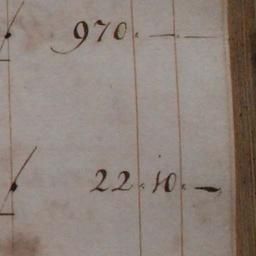 970 . — —
22 . 10 . —